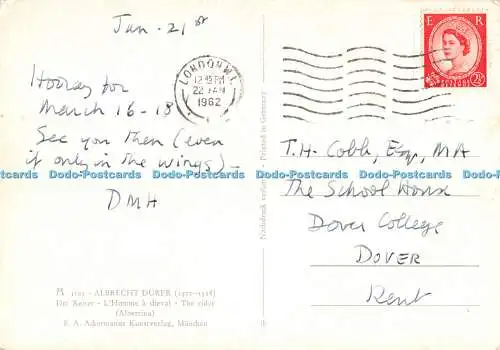 Jan. 21st
Hooray for
March 16-18
See you then (even
if only in the wings)-
DMH
LONDON W.1.
12 45 PM
22 JAN
1962
E R
2½
T.H. Cobb, Esq, MA
The School House
Dover College
DOVER
Kent
Printed in Germany
ALBRECHT DÜRER
Der Reiter - L'Homme à cheval - The rider
(Albertina)
F. A. Ackermanns Kunstverlag, München
Dodo-Postcards Dodo-Postcards Dodo-Postcards Dodo-Postcards